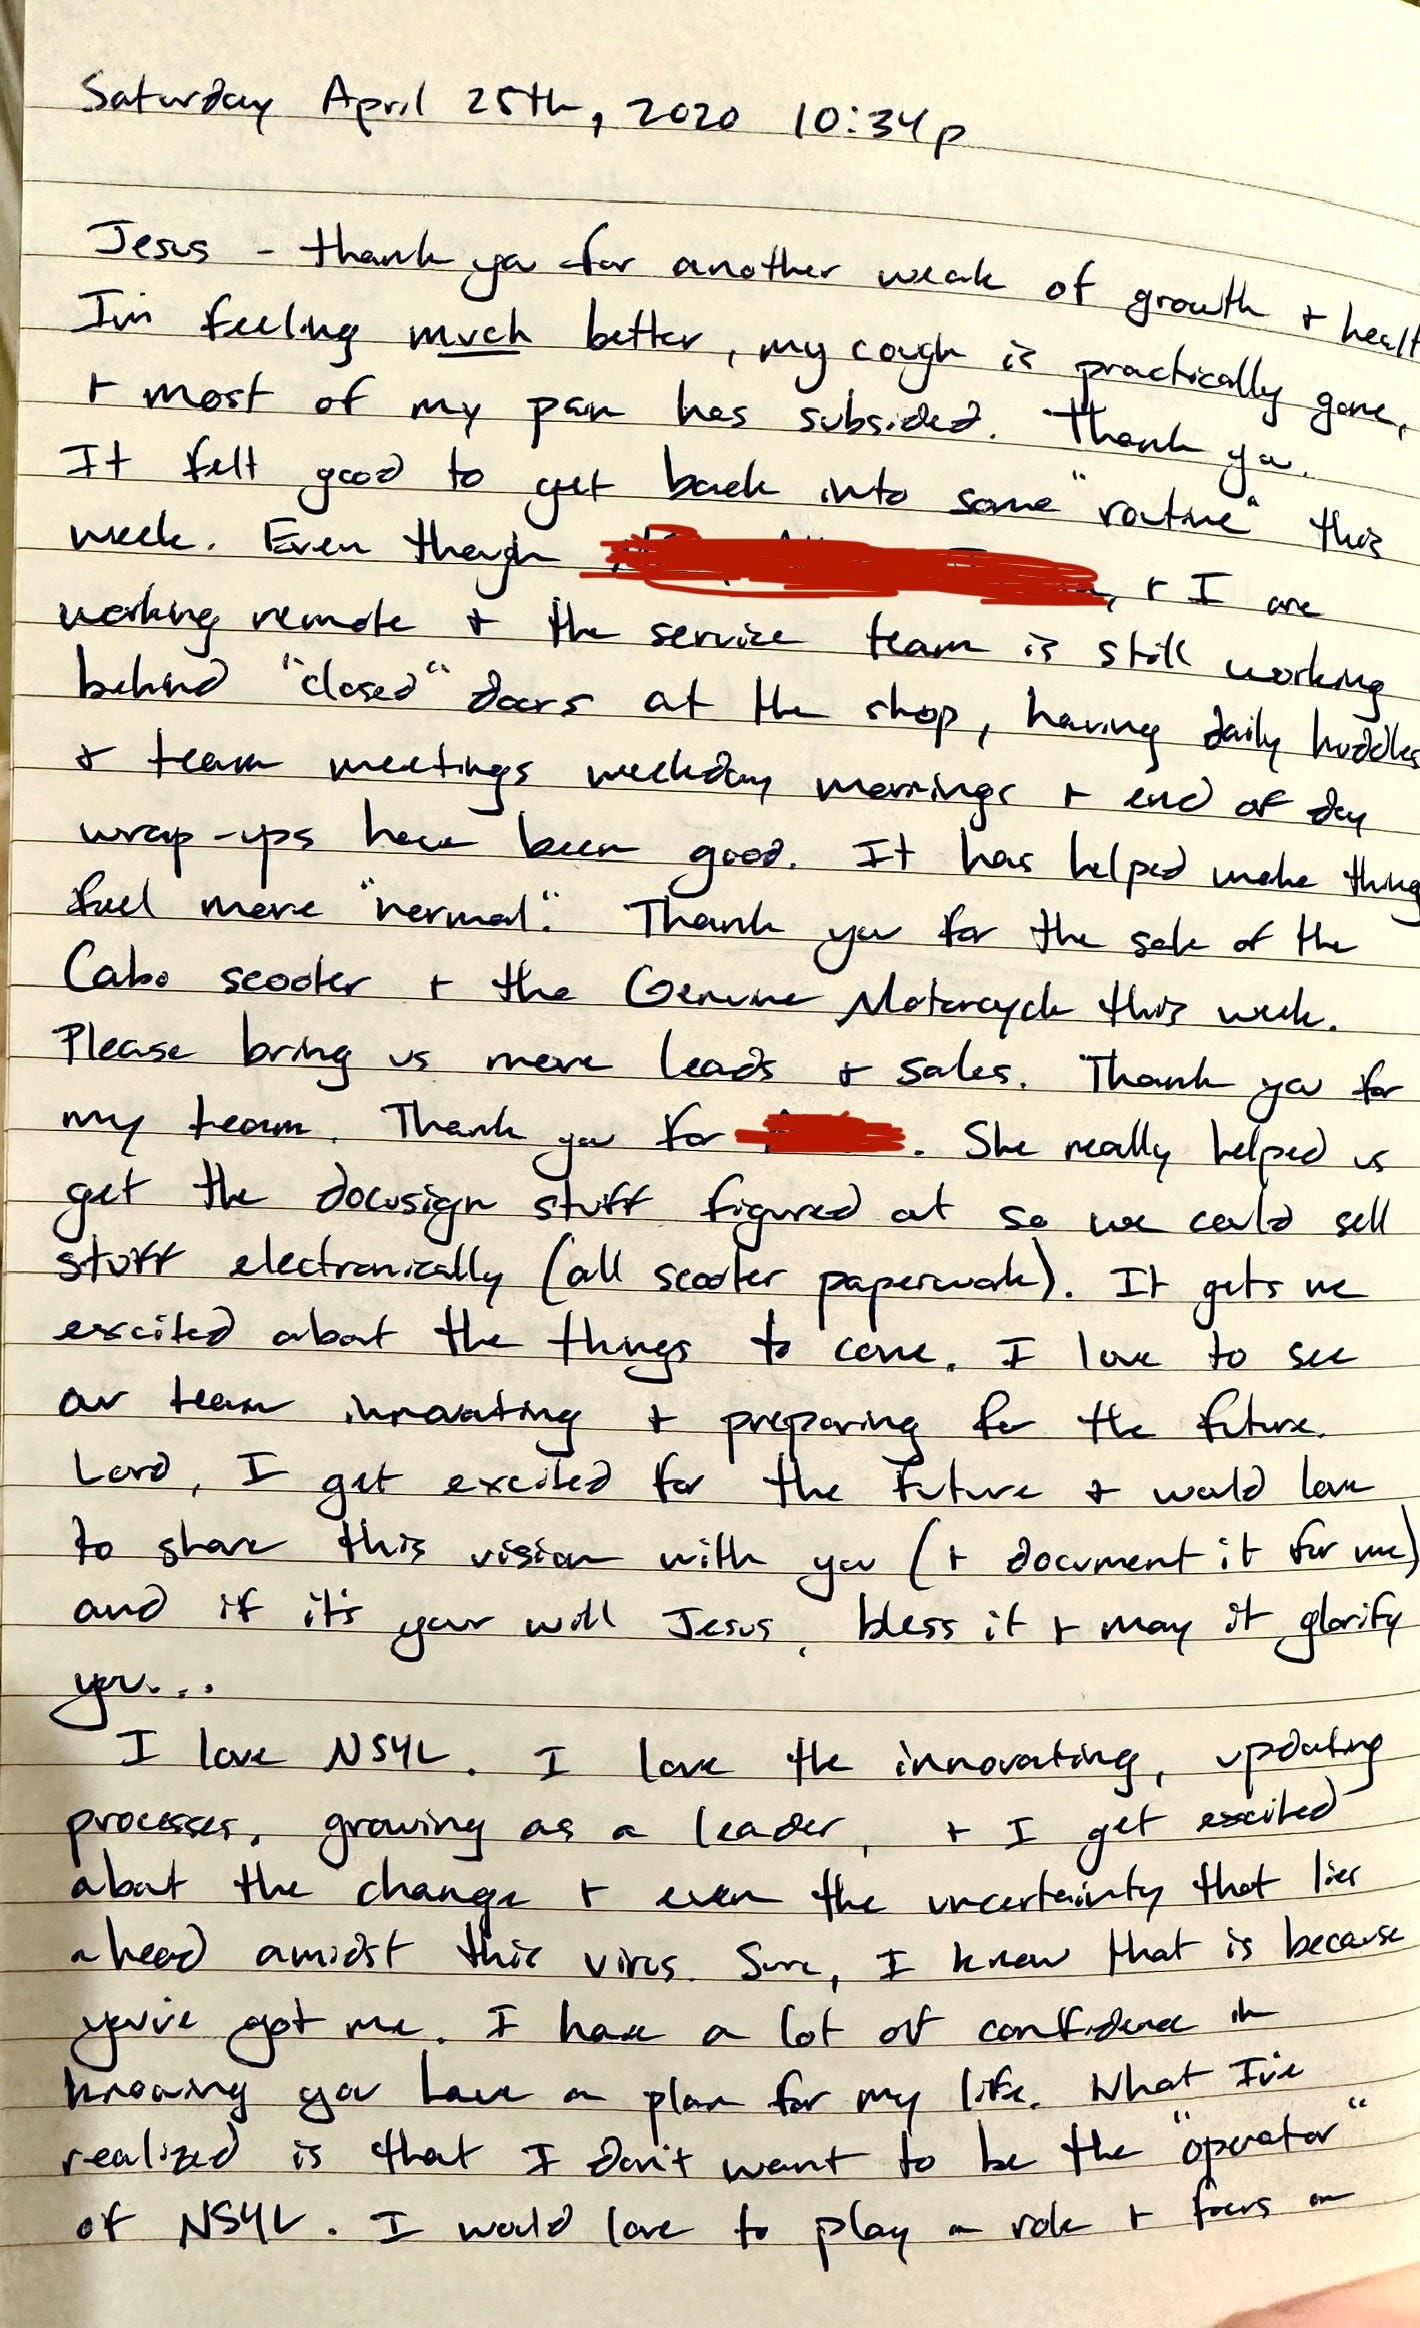 Saturday April 25th, 2020 10:34p
Jesus - thank you for another week of growth + healt
I'm feeling much better, my cough is practically gone,
+ most of my pain has subsided. Thank you.
It felt good to get back into some "routine" this
week. Even though , + I are
working remote + the service team is still working
behind "closed" doors at the shop, having daily huddles
+ team meetings weekday mornings + end of day
wrap-ups have been good. It has helped make thing
feel more "normal". Thank you for the sale of the
Cabo scooter + the Genuine Motorcycle this week.
Please bring us more leads + sales. Thank you for
my team. Thank you for . She really helped us
get the docusign stuff figured out so we could sell
stuff electronically (all scooter paperwork). It gets me
excited about the things to come. I love to see
our team innovating + preparing for the future.
Lord, I get excited for the future + would love
to share this vision with you (+ document it for me)
and if it's your will Jesus, bless it + may it glorify
you...
I love NSYL. I love the innovating, updating
processes, growing as a leader, + I get excited
about the change + even the uncertainty that lies
ahead amidst this virus. Sure, I know that is because
you've got me. I have a lot of confidence in
knowing you have a plan for my life. What I've
realized is that I don't want to be the "operator"
of NSYL. I would love to play a role + focus on